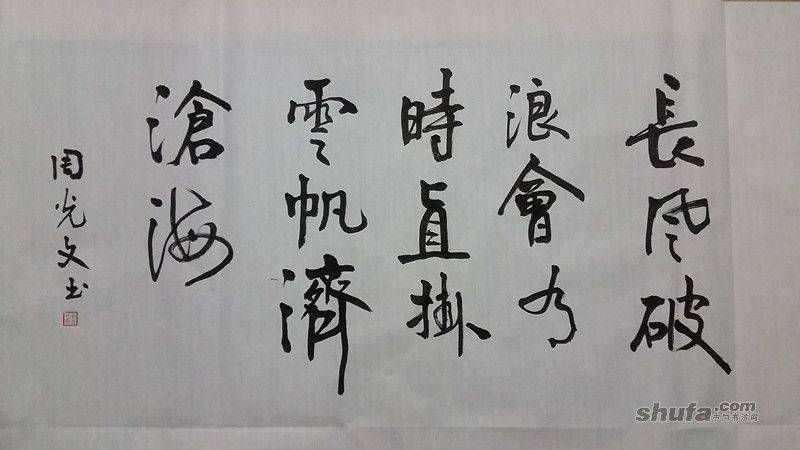 長風破
浪會有
時直掛
雲帆濟
滄海
周光文书
shufa.com
中国书法网